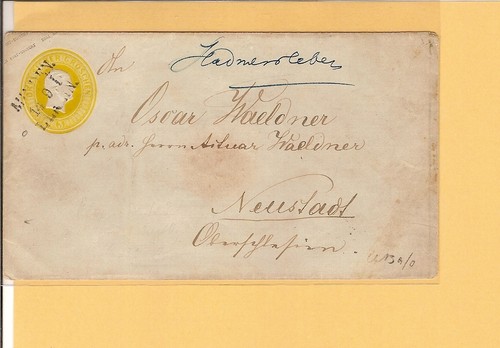 An
Hadmersleben
Oscar Waeldner
p. adr. Herrn Actuar Waeldner
Neustadt
Oberschlesien.